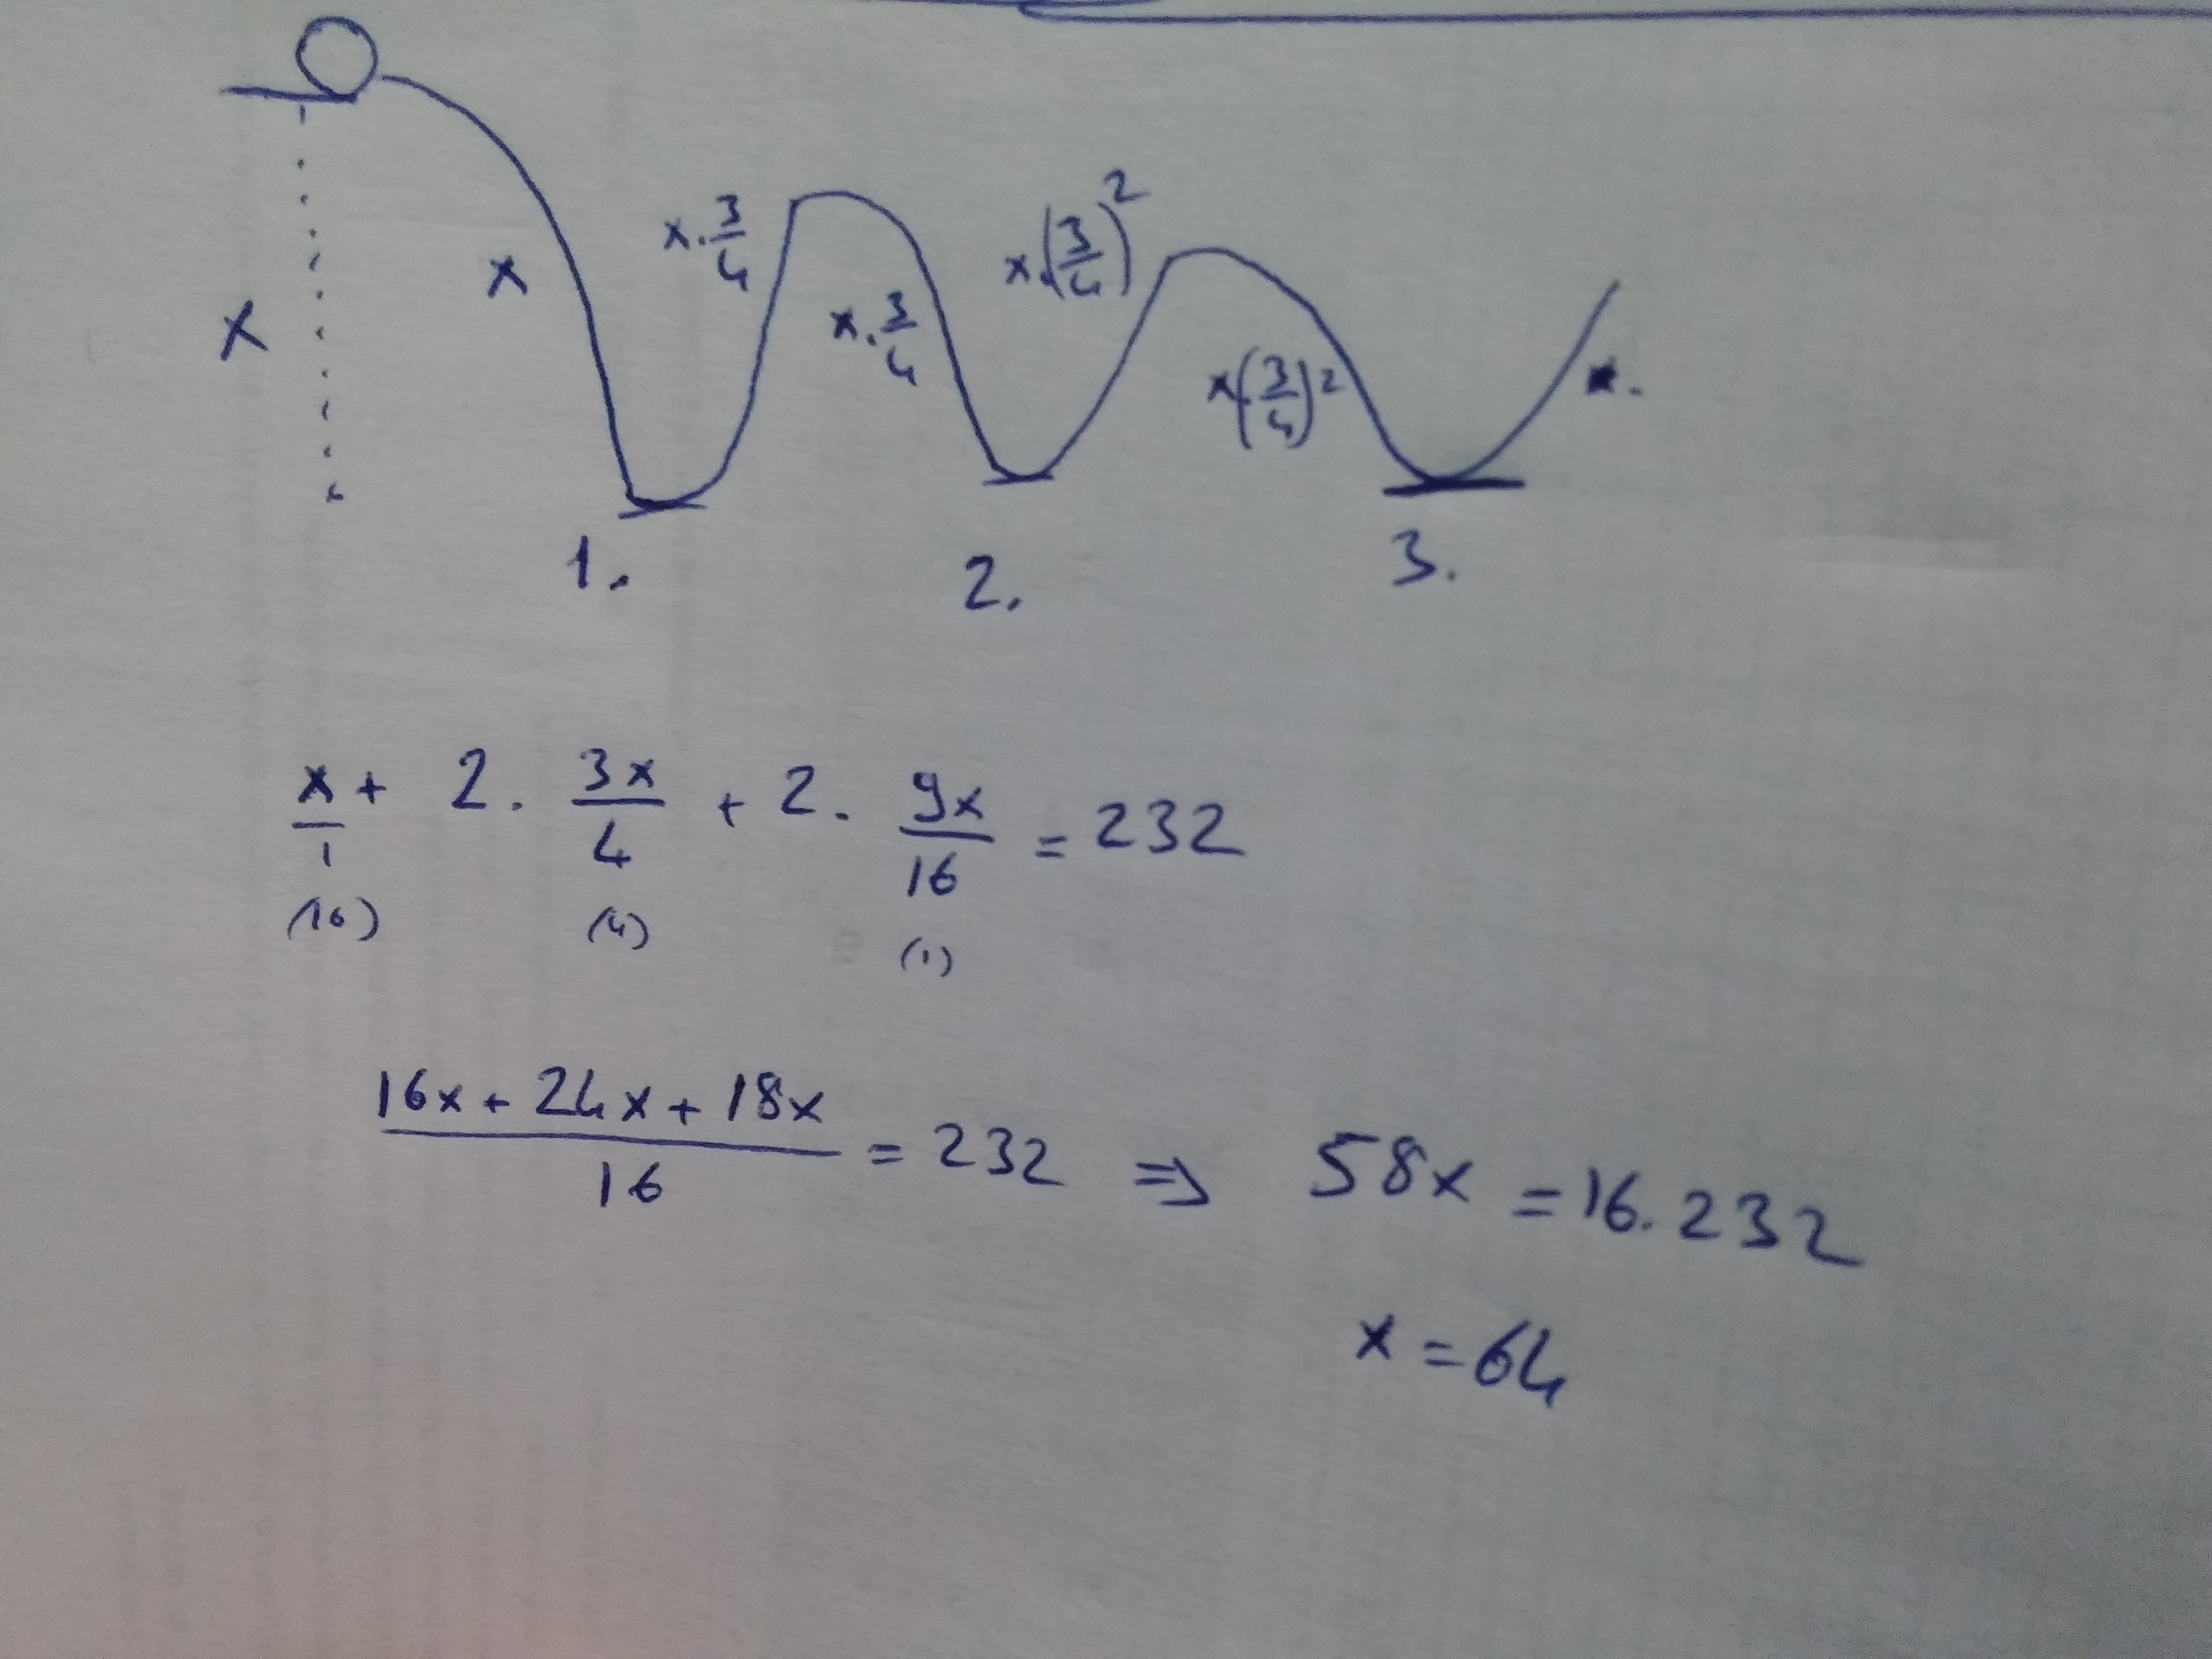 x · 3/4
x · (3/4)²
x
x
x · 3/4
x (3/4)²
x.
1.
2.
3.
x/1 + 2 · 3x/4 + 2 · 9x/16 = 232
(16) (4) (1)
(16x + 24x + 18x)/16 = 232 ⇒ 58x = 16.232
x = 64